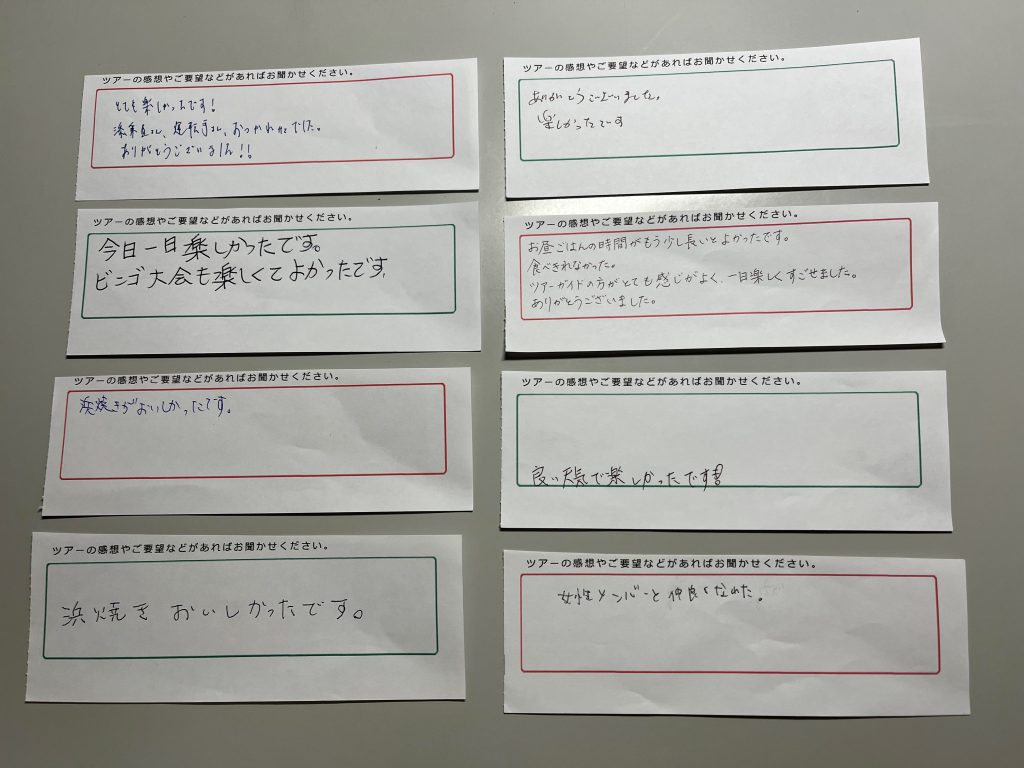 ツアーの感想やご要望などがあればお聞かせください。
とても楽しかったです!
添乗員さん、運転手さん、おつかれさまでした。
ありがとうございました!!
ツアーの感想やご要望などがあればお聞かせください。
ありがとうございました。
楽しかったでーす
ツアーの感想やご要望などがあればお聞かせください。
今日一日楽しかったです。
ビンゴ大会も楽しくてよかったです。
ツアーの感想やご要望などがあればお聞かせください。
お昼ごはんの時間がもう少し長いとよかったです。
食べきれなかった。
ツアーガイドの方がとても感じがよく、一日楽しくすごせました。
ありがとうございました。
ツアーの感想やご要望などがあればお聞かせください。
浜焼きがおいしかったです。
ツアーの感想やご要望などがあればお聞かせください。
良い天気で楽しかったです!!
ツアーの感想やご要望などがあればお聞かせください。
浜焼き おいしかったです。
ツアーの感想やご要望などがあればお聞かせください。
女性メンバーと仲良くなれた。